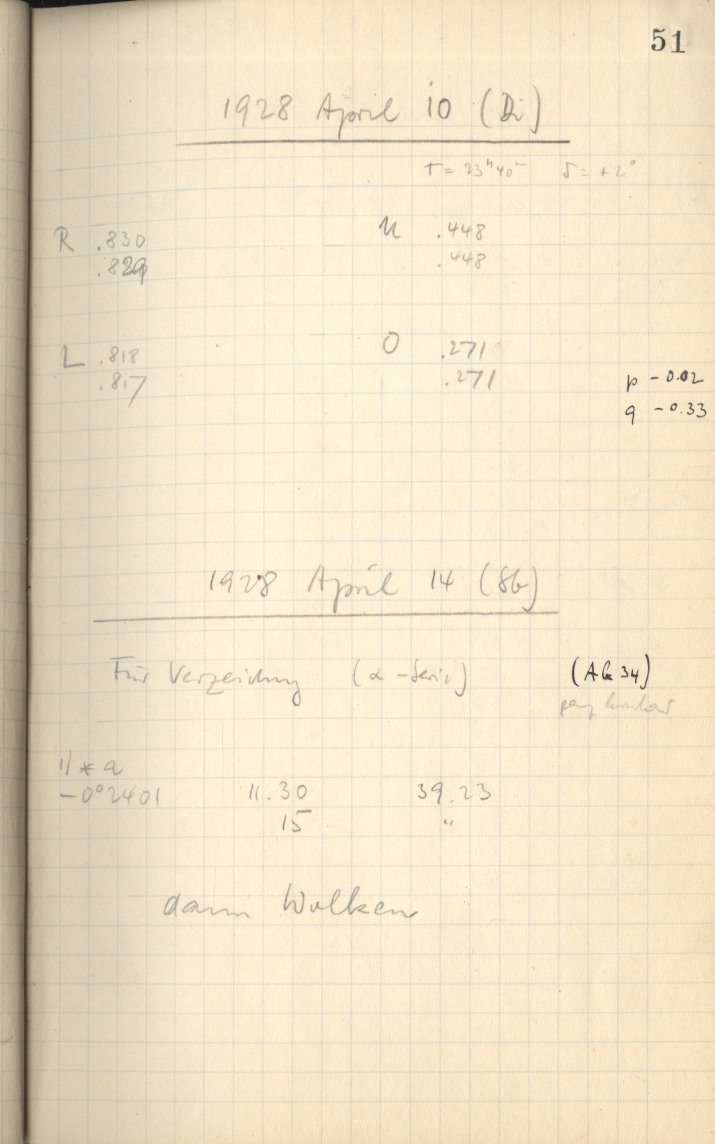 51
1928 April 10 (Di)
τ = 23ʰ40ᵐ δ = +2°
R .830 U .448
.829 .448
L .818 O .271
.817 .271
p - 0.02
q - 0.33
1928 April 14 (Sb)
Für Verzeichng (α-Serie) (Ab 34)
1) * a
-0°2401 11.30 39.23
15 "
dann Wolken